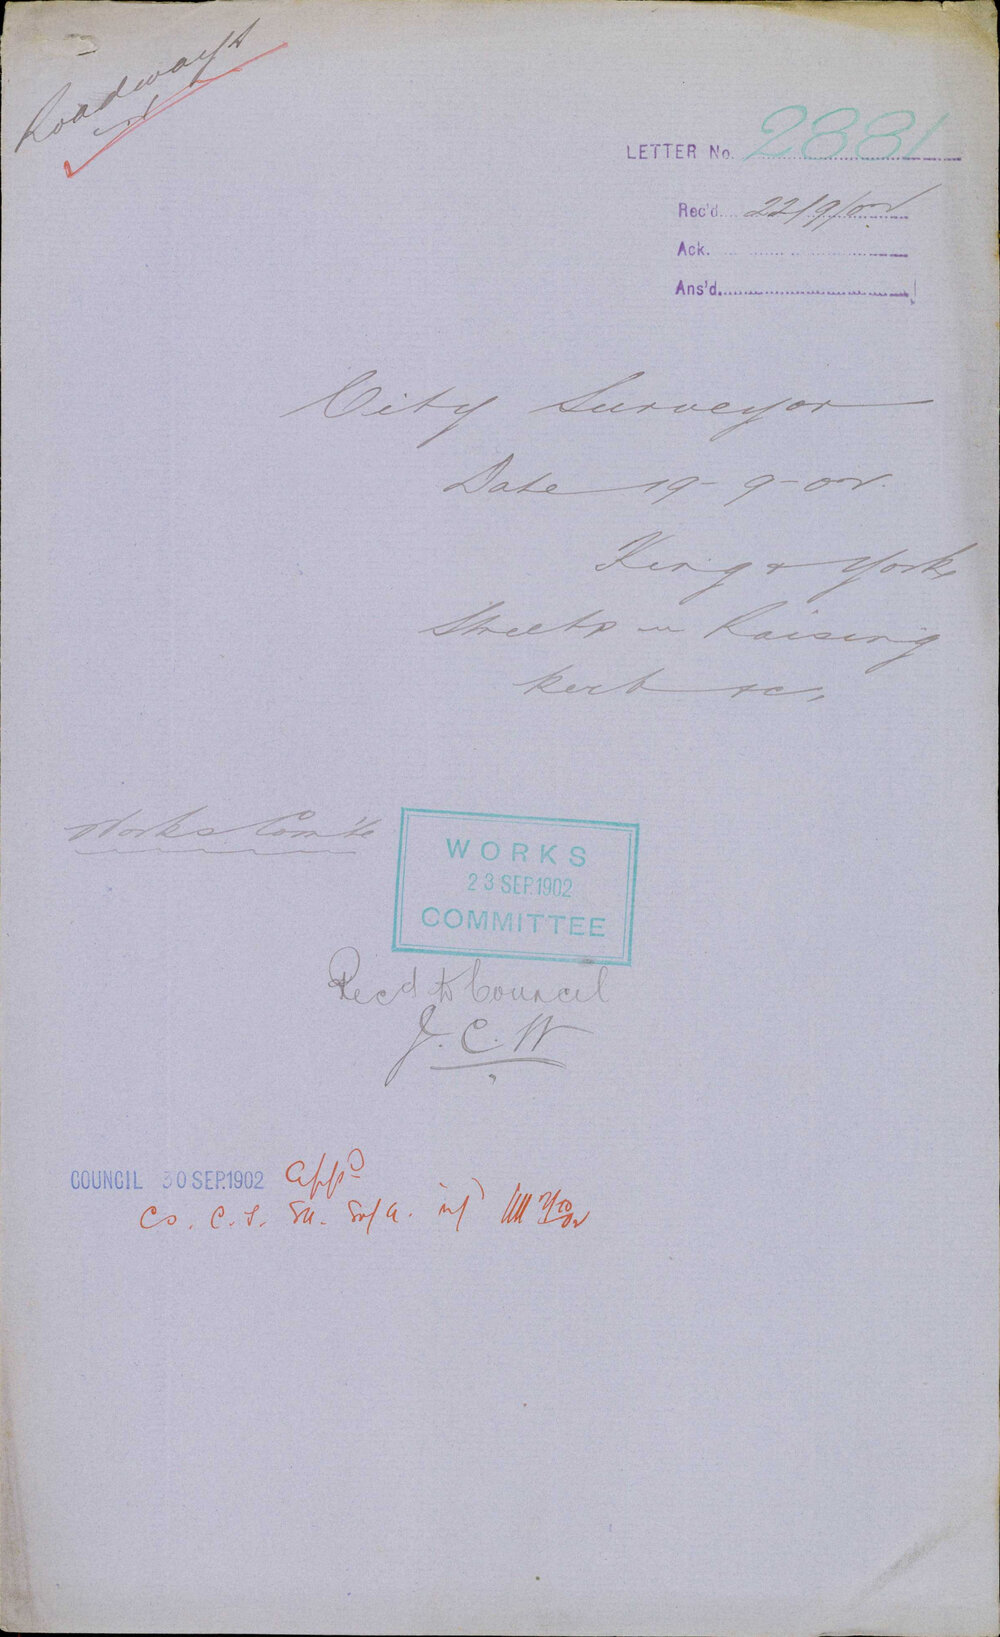 Roadways
LETTER No. 2881
Rec'd. 22/9/02
Ack.
Ans'd.
City Surveyor
Date 19-9-02.
King & York
Streets - Raising
Kerb &c,
Works Com'tte
WORKS
23 SEP.1902
COMMITTEE
Rec'd to Council
J. C. W
COUNCIL 30 SEP.1902 appd
Co. C. S. inf